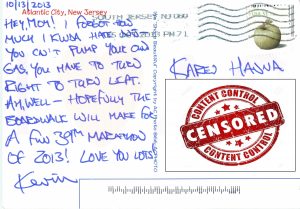 10/13/2013
Atlantic City, New Jersey
HEY, MOM! I FORGOT HOW
MUCH I KINDA HATE
YOU CAN'T PUMP YOUR OWN
GAS, YOU HAVE TO TURN
RIGHT TO TURN LEFT.
AH, WELL - HOPEFULLY THE
BOARDWALK WILL MAKE FOR
A FUN 39TH MARATHON
OF 2013! LOVE YOU LOTS!
Kevin
SOUTH JERSEY NJ 080
2013 PM 7 L
KAREN HANNA
CONTENT CONTROL
CENSORED
CONTENT CONTROL